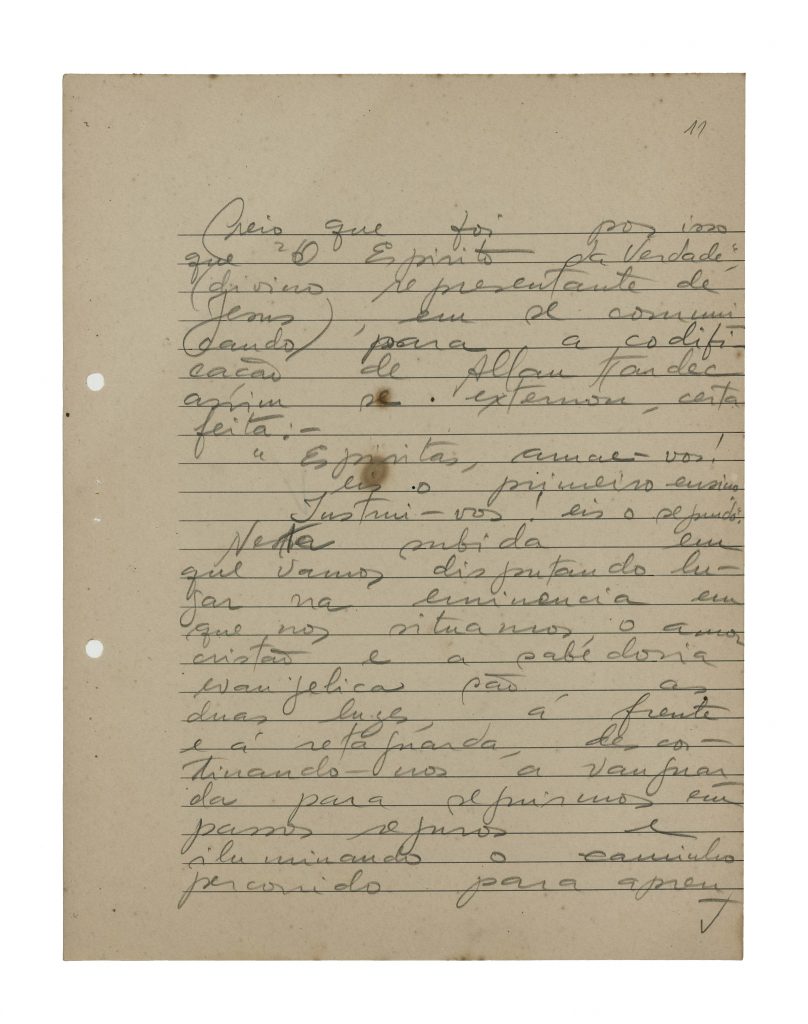 11
Creio que foi por isso
que "O Espirito da Verdade",
(divino representante de
Jesus), em se comuni
cando, para a codifi-
cacão de Allan Kardec
assim se externou, certa
feita: -
" Espiritas, amae-vos!
eis o primeiro ensino.
Instrui-vos! eis o segundo".
Nesta subida em
que vamos disputando lu-
gar na eminencia em
que nos situamos, o amor
cristão e a sabedoria
evangelica são as
duas luzes, á frente
e á retaguarda, descor-
tinando-nos a vanguar
da para seguirmos em
passos seguros e
iluminando o caminho
percorrido para apren